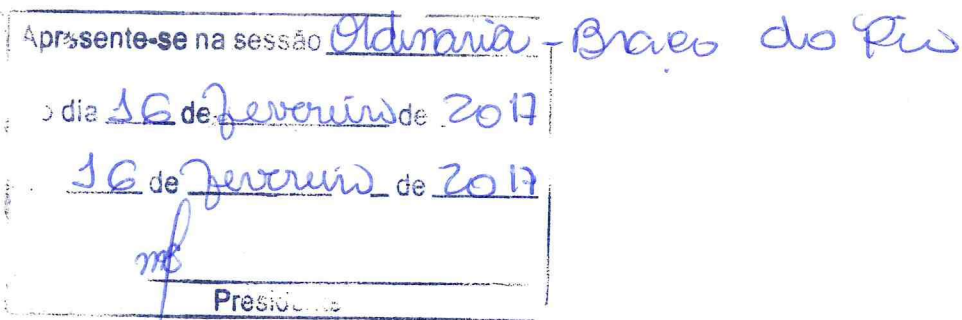 Apresente-se na sessão Ordinaria - Braço do Rio
o dia 16 de fevereiro de 2017
16 de fevereiro de 2017
Presidente